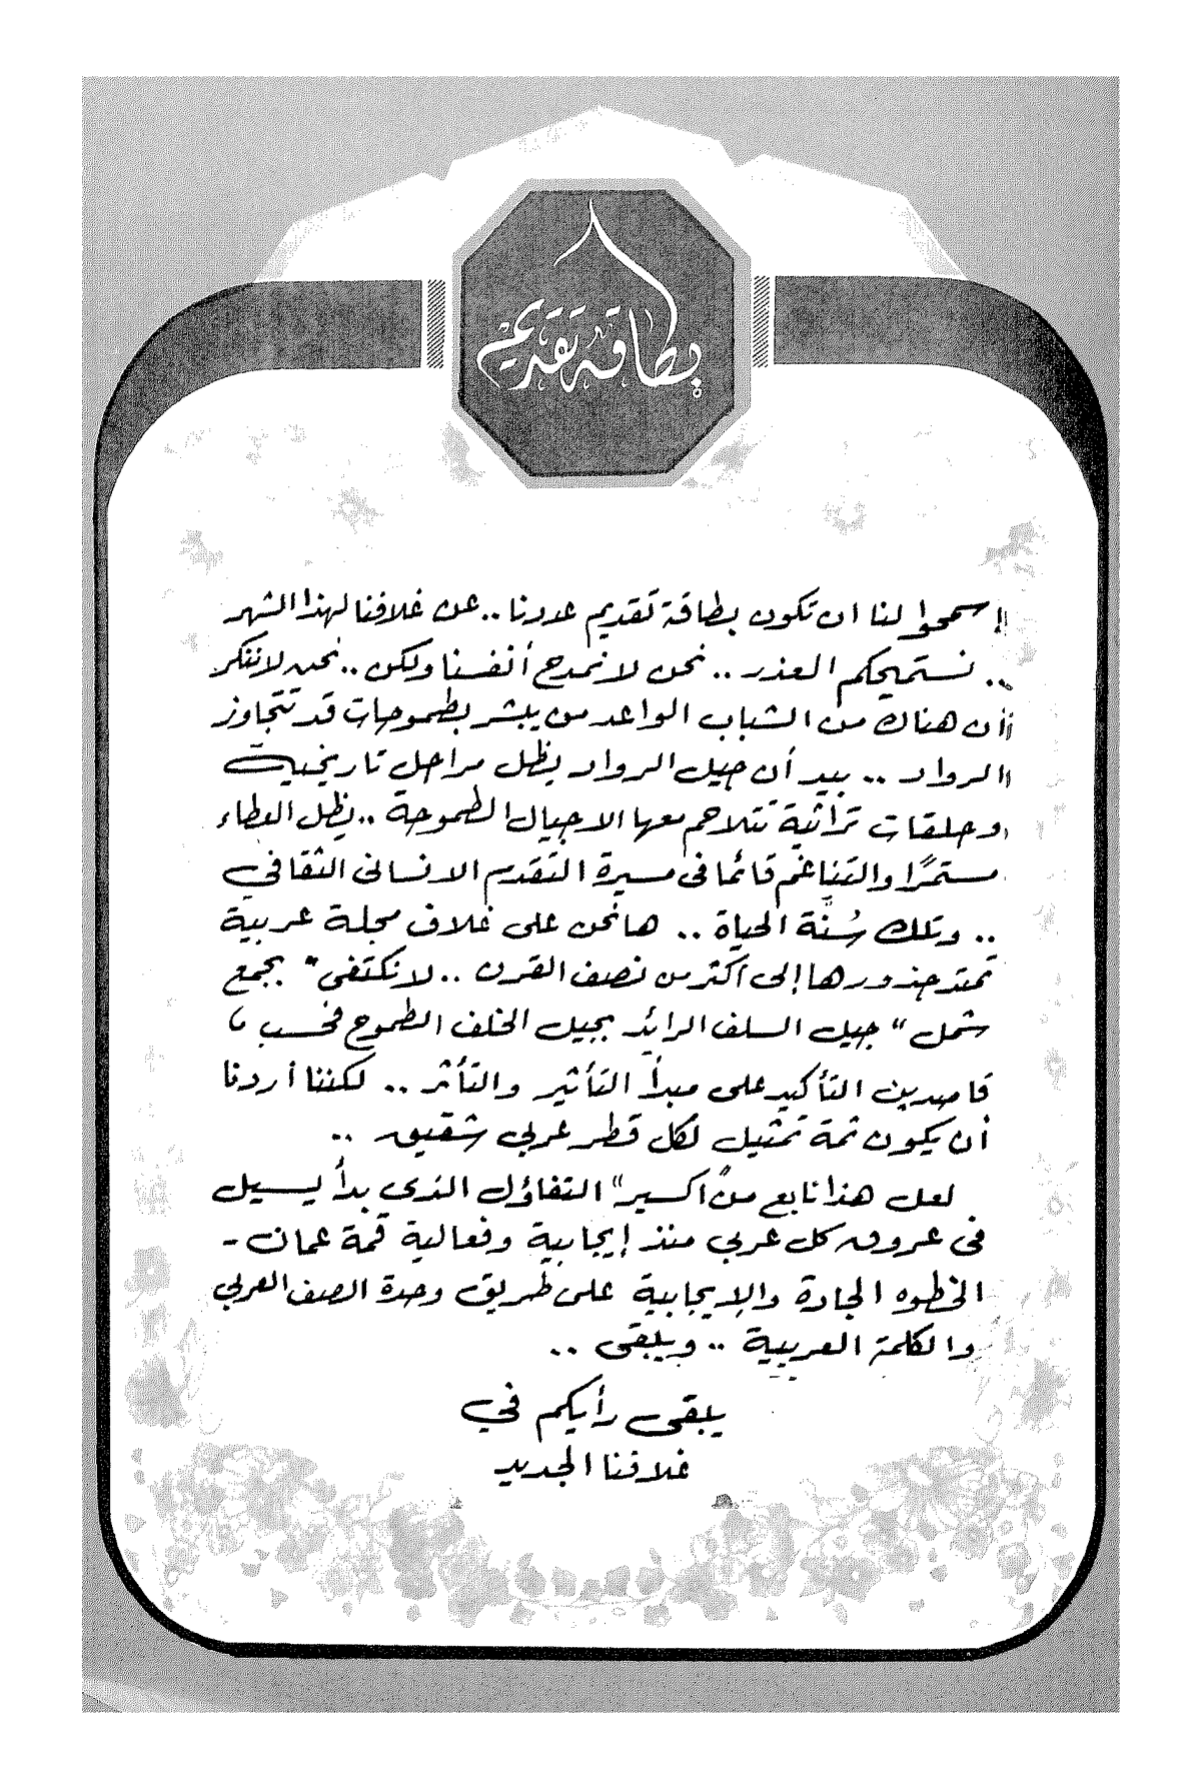 بطاقة تقديم
إسمحوا لنا ان تكون بطاقة تقديم عددنا .. عن غلافنا لهذا الشهر
.. نستميحكم العذر .. نحن لا نمدح أنفسنا ولكن .. نحن لا ننكر
أن هناك من الشباب الواعد من يبشر بطموحات قد تتجاوز
الرواد .. بيد أن جيل الرواد يظل مراحل تاريخية
وحلقات تراثية تتلاحم معها الاجيال الطموحة .. يظل العطاء
مستمرًا والتناغم قائما في مسيرة التقدم الانسانى الثقافي
.. وتلك سُنَّة الحياة .. هانحن على غلاف مجلة عربية
تمتد جذورها إلى أكثر من نصف القرن .. لا نكتفى " بجمع
شمل " جيل السلف الرائد بجيل الخلف الطموح فحسب ،
قاصدين التأكيد على مبدأ التأثير والتأثر .. لكننا أردنا
أن يكون ثمة تمثيل لكل قطر عربي شقيق ..
لعل هذا نابع من "اكسير" التفاؤل الذى بدأ يسيل
فى عروق كل عربي منذ إيجابية وفعالية قمة عمان -
الخطوه الجادة والإيجابية على طريق وحدة الصف العربي
والكلمة العربية .. ويبقى ..
يبقى رأيكم في
غلافنا الجديد